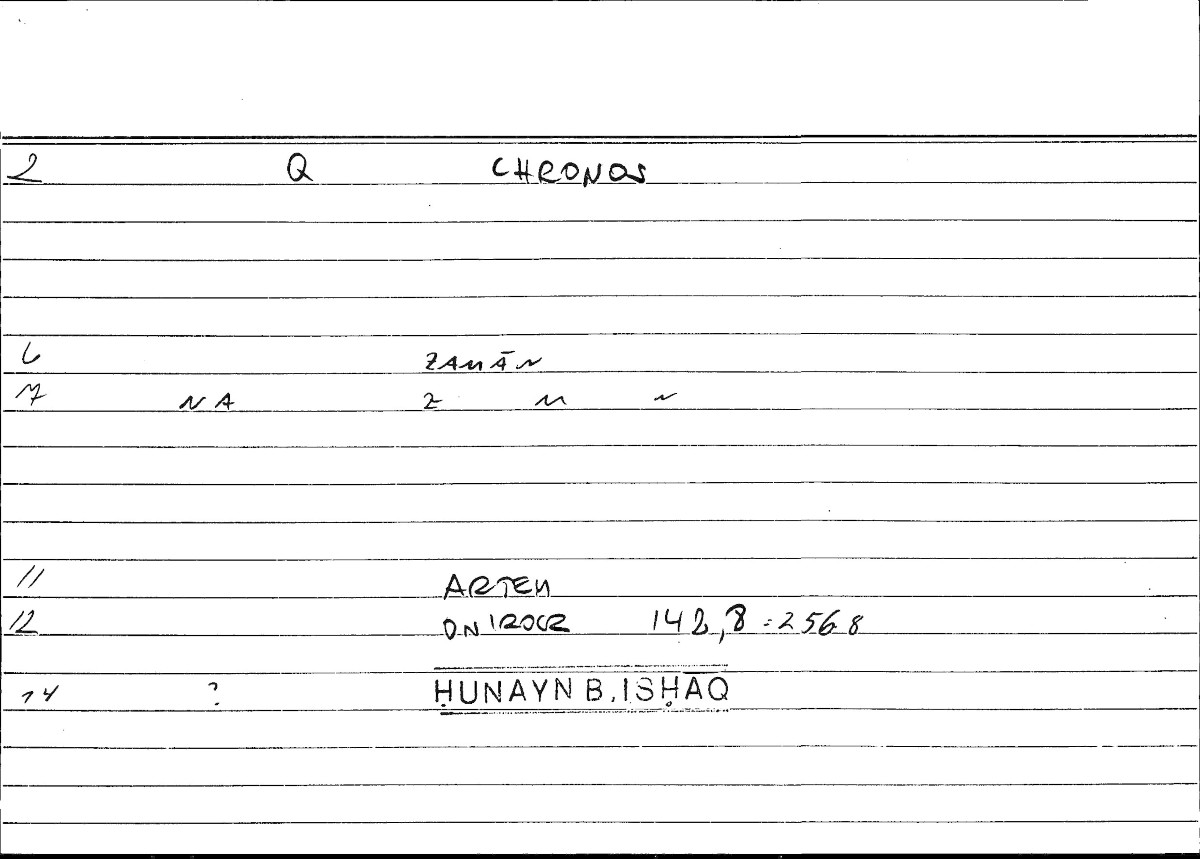 2 Q CHRONOS
6 ZAMĀN
7 NA Z M N
11 ARTEM
12 ONIROCR 142,8 = 256 8
14 ? ḤUNAYN B. ISḤAQ